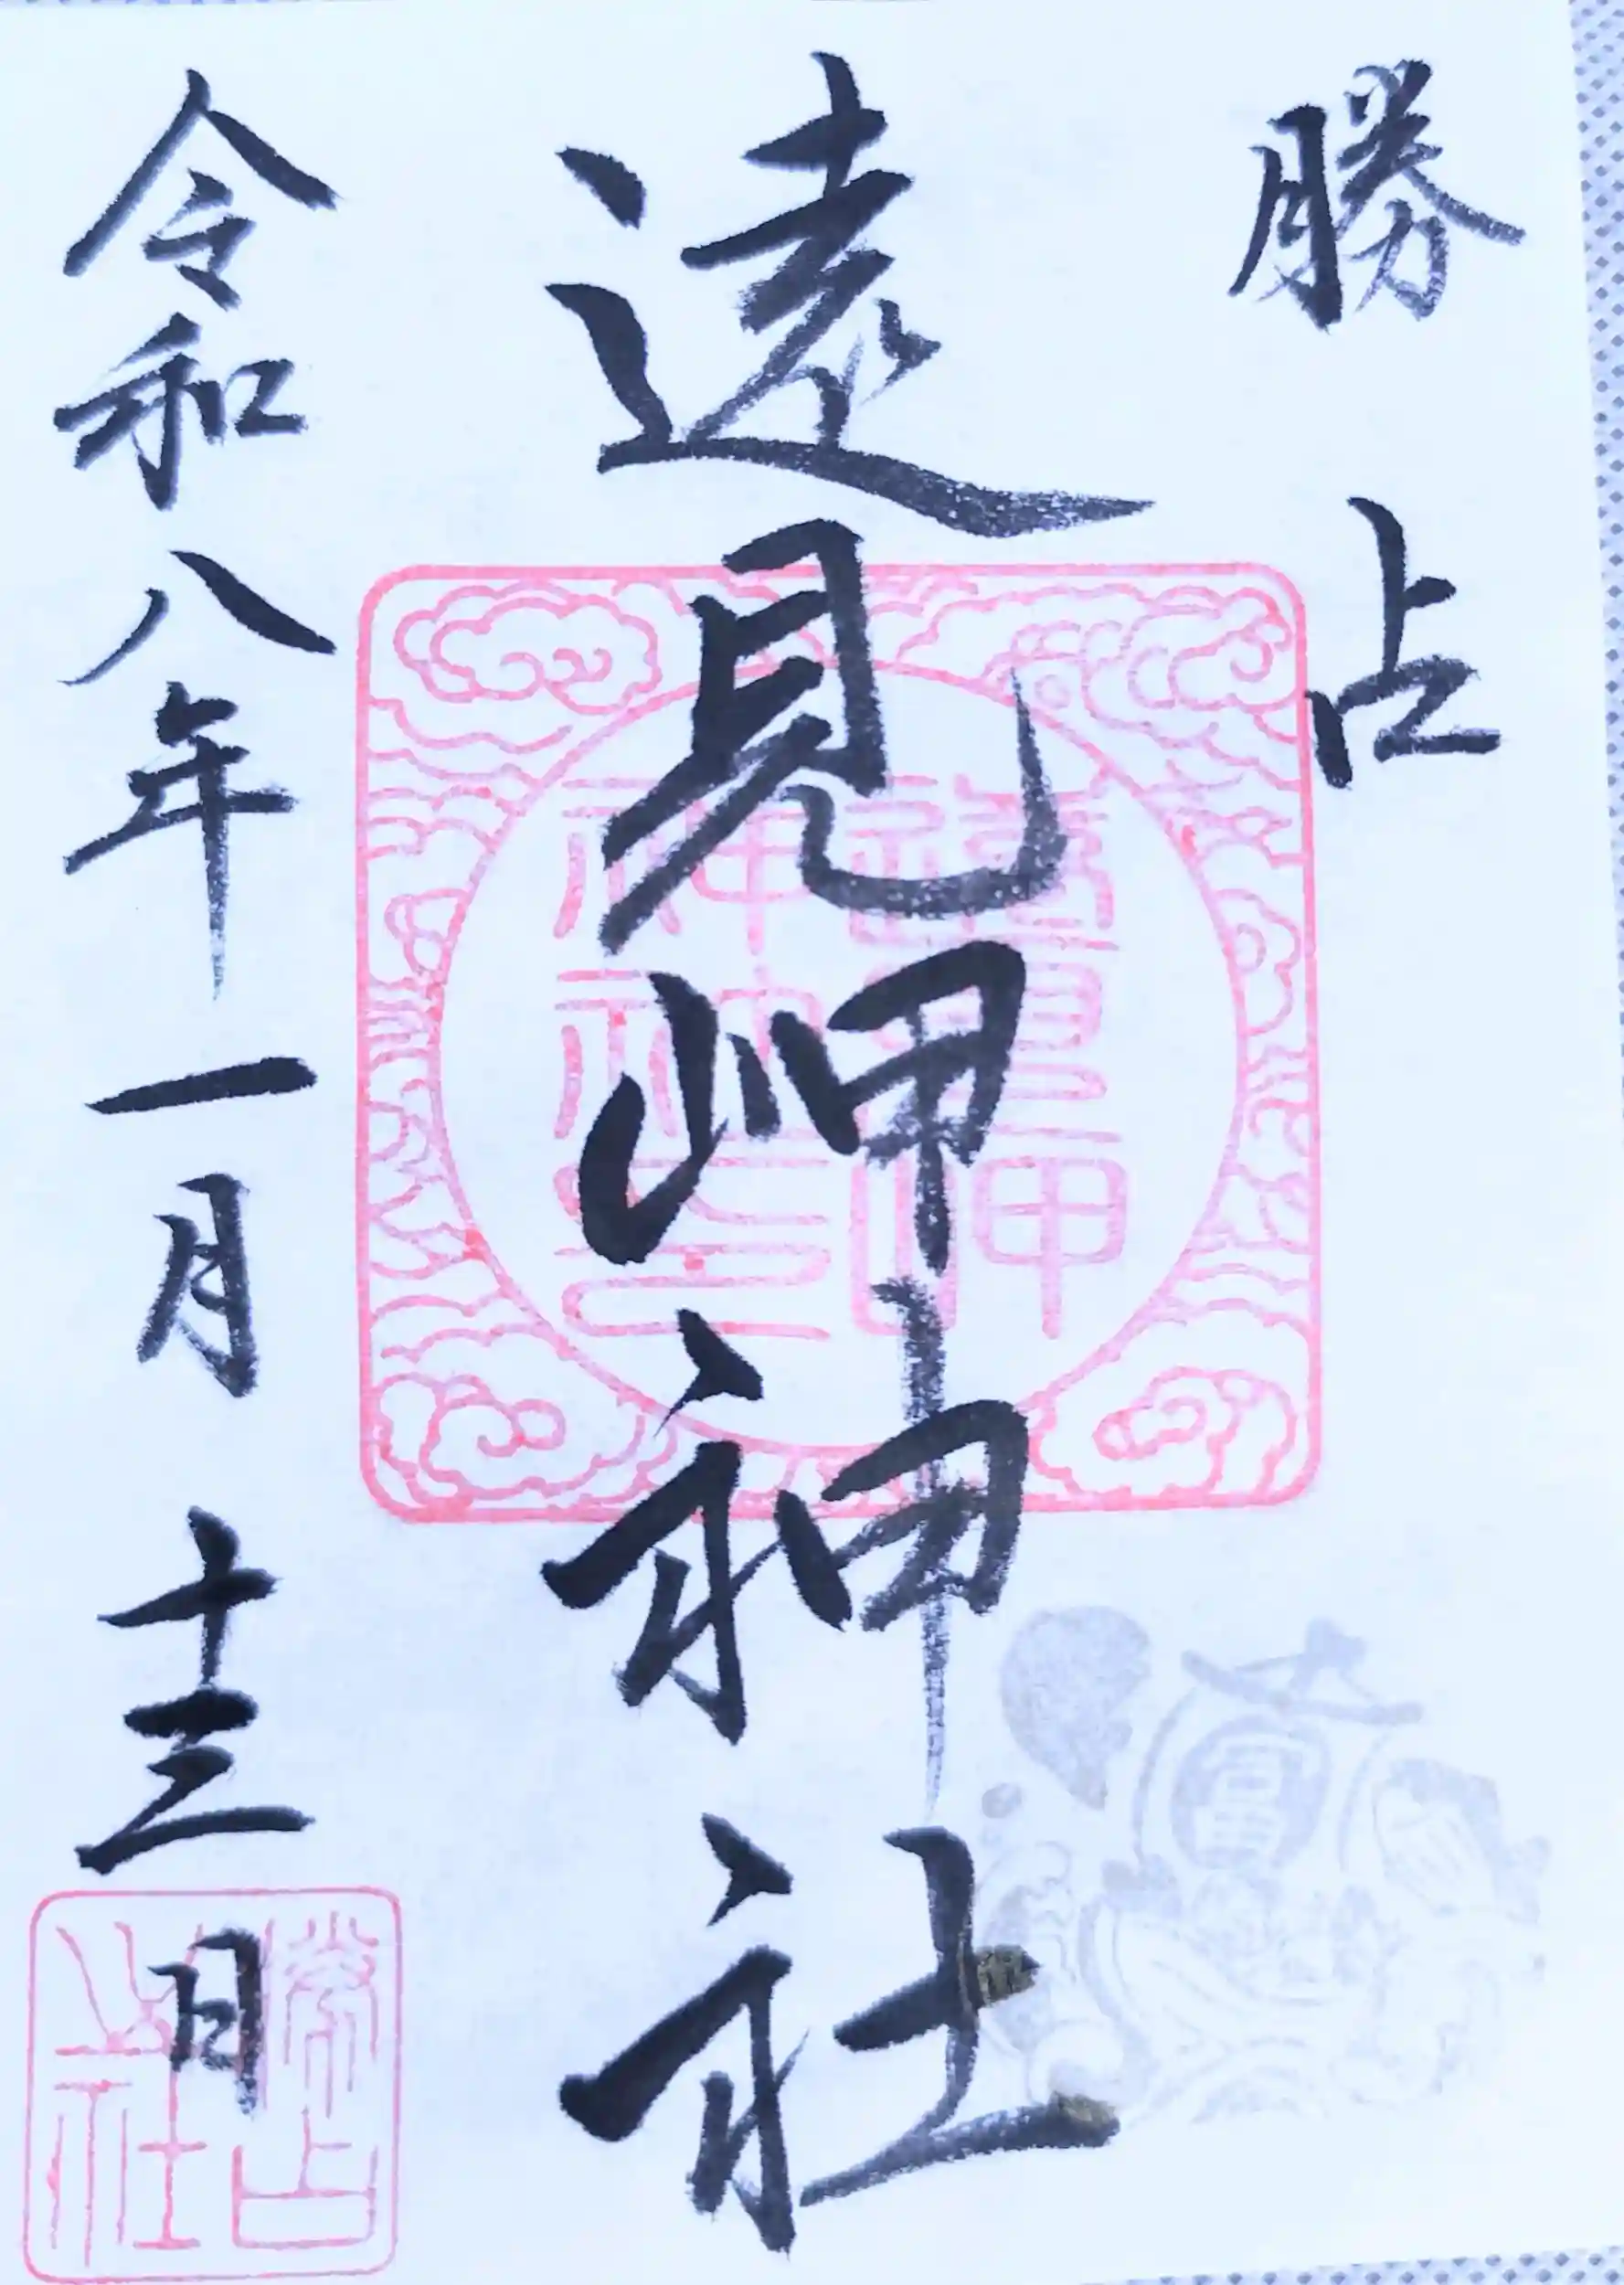 勝占
遠見岬神社
令和八年一月十三日
遠見岬
神社之印
勝占
之社
富